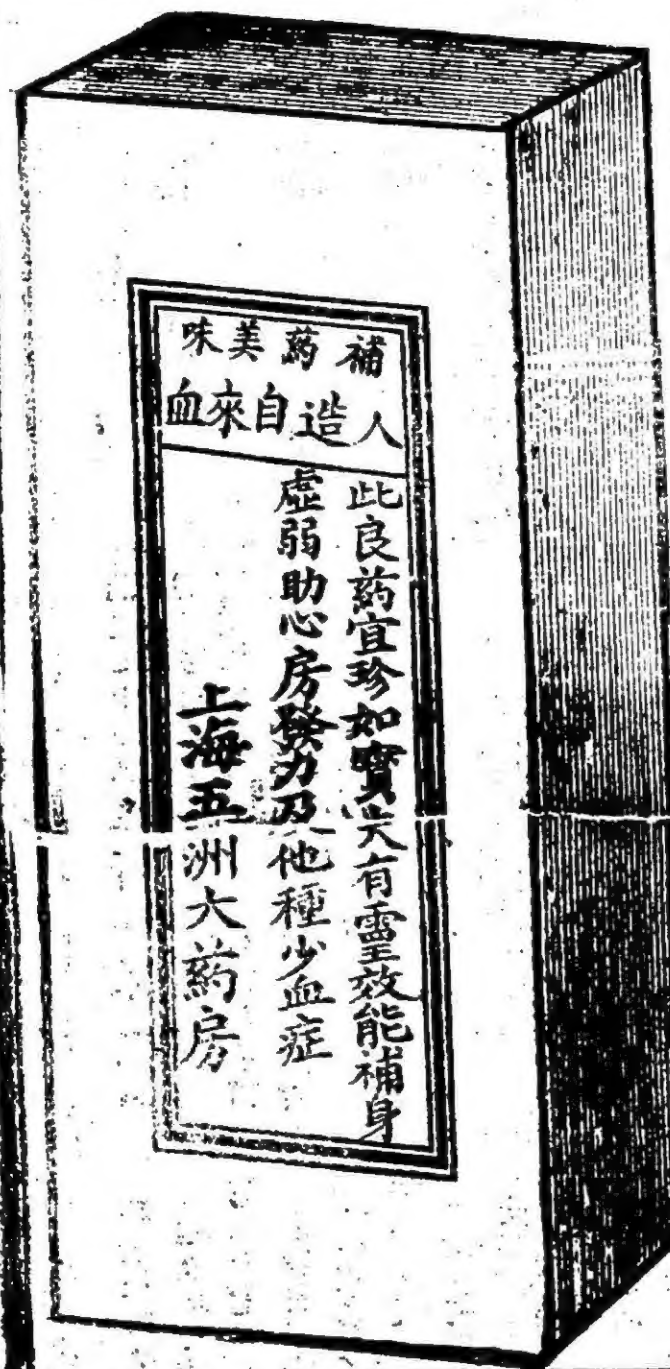 補藥美味
人造自來血
此良藥宜珍如寶大有靈效能補身
虛弱助心房發力及他種少血症
上海五洲大藥房